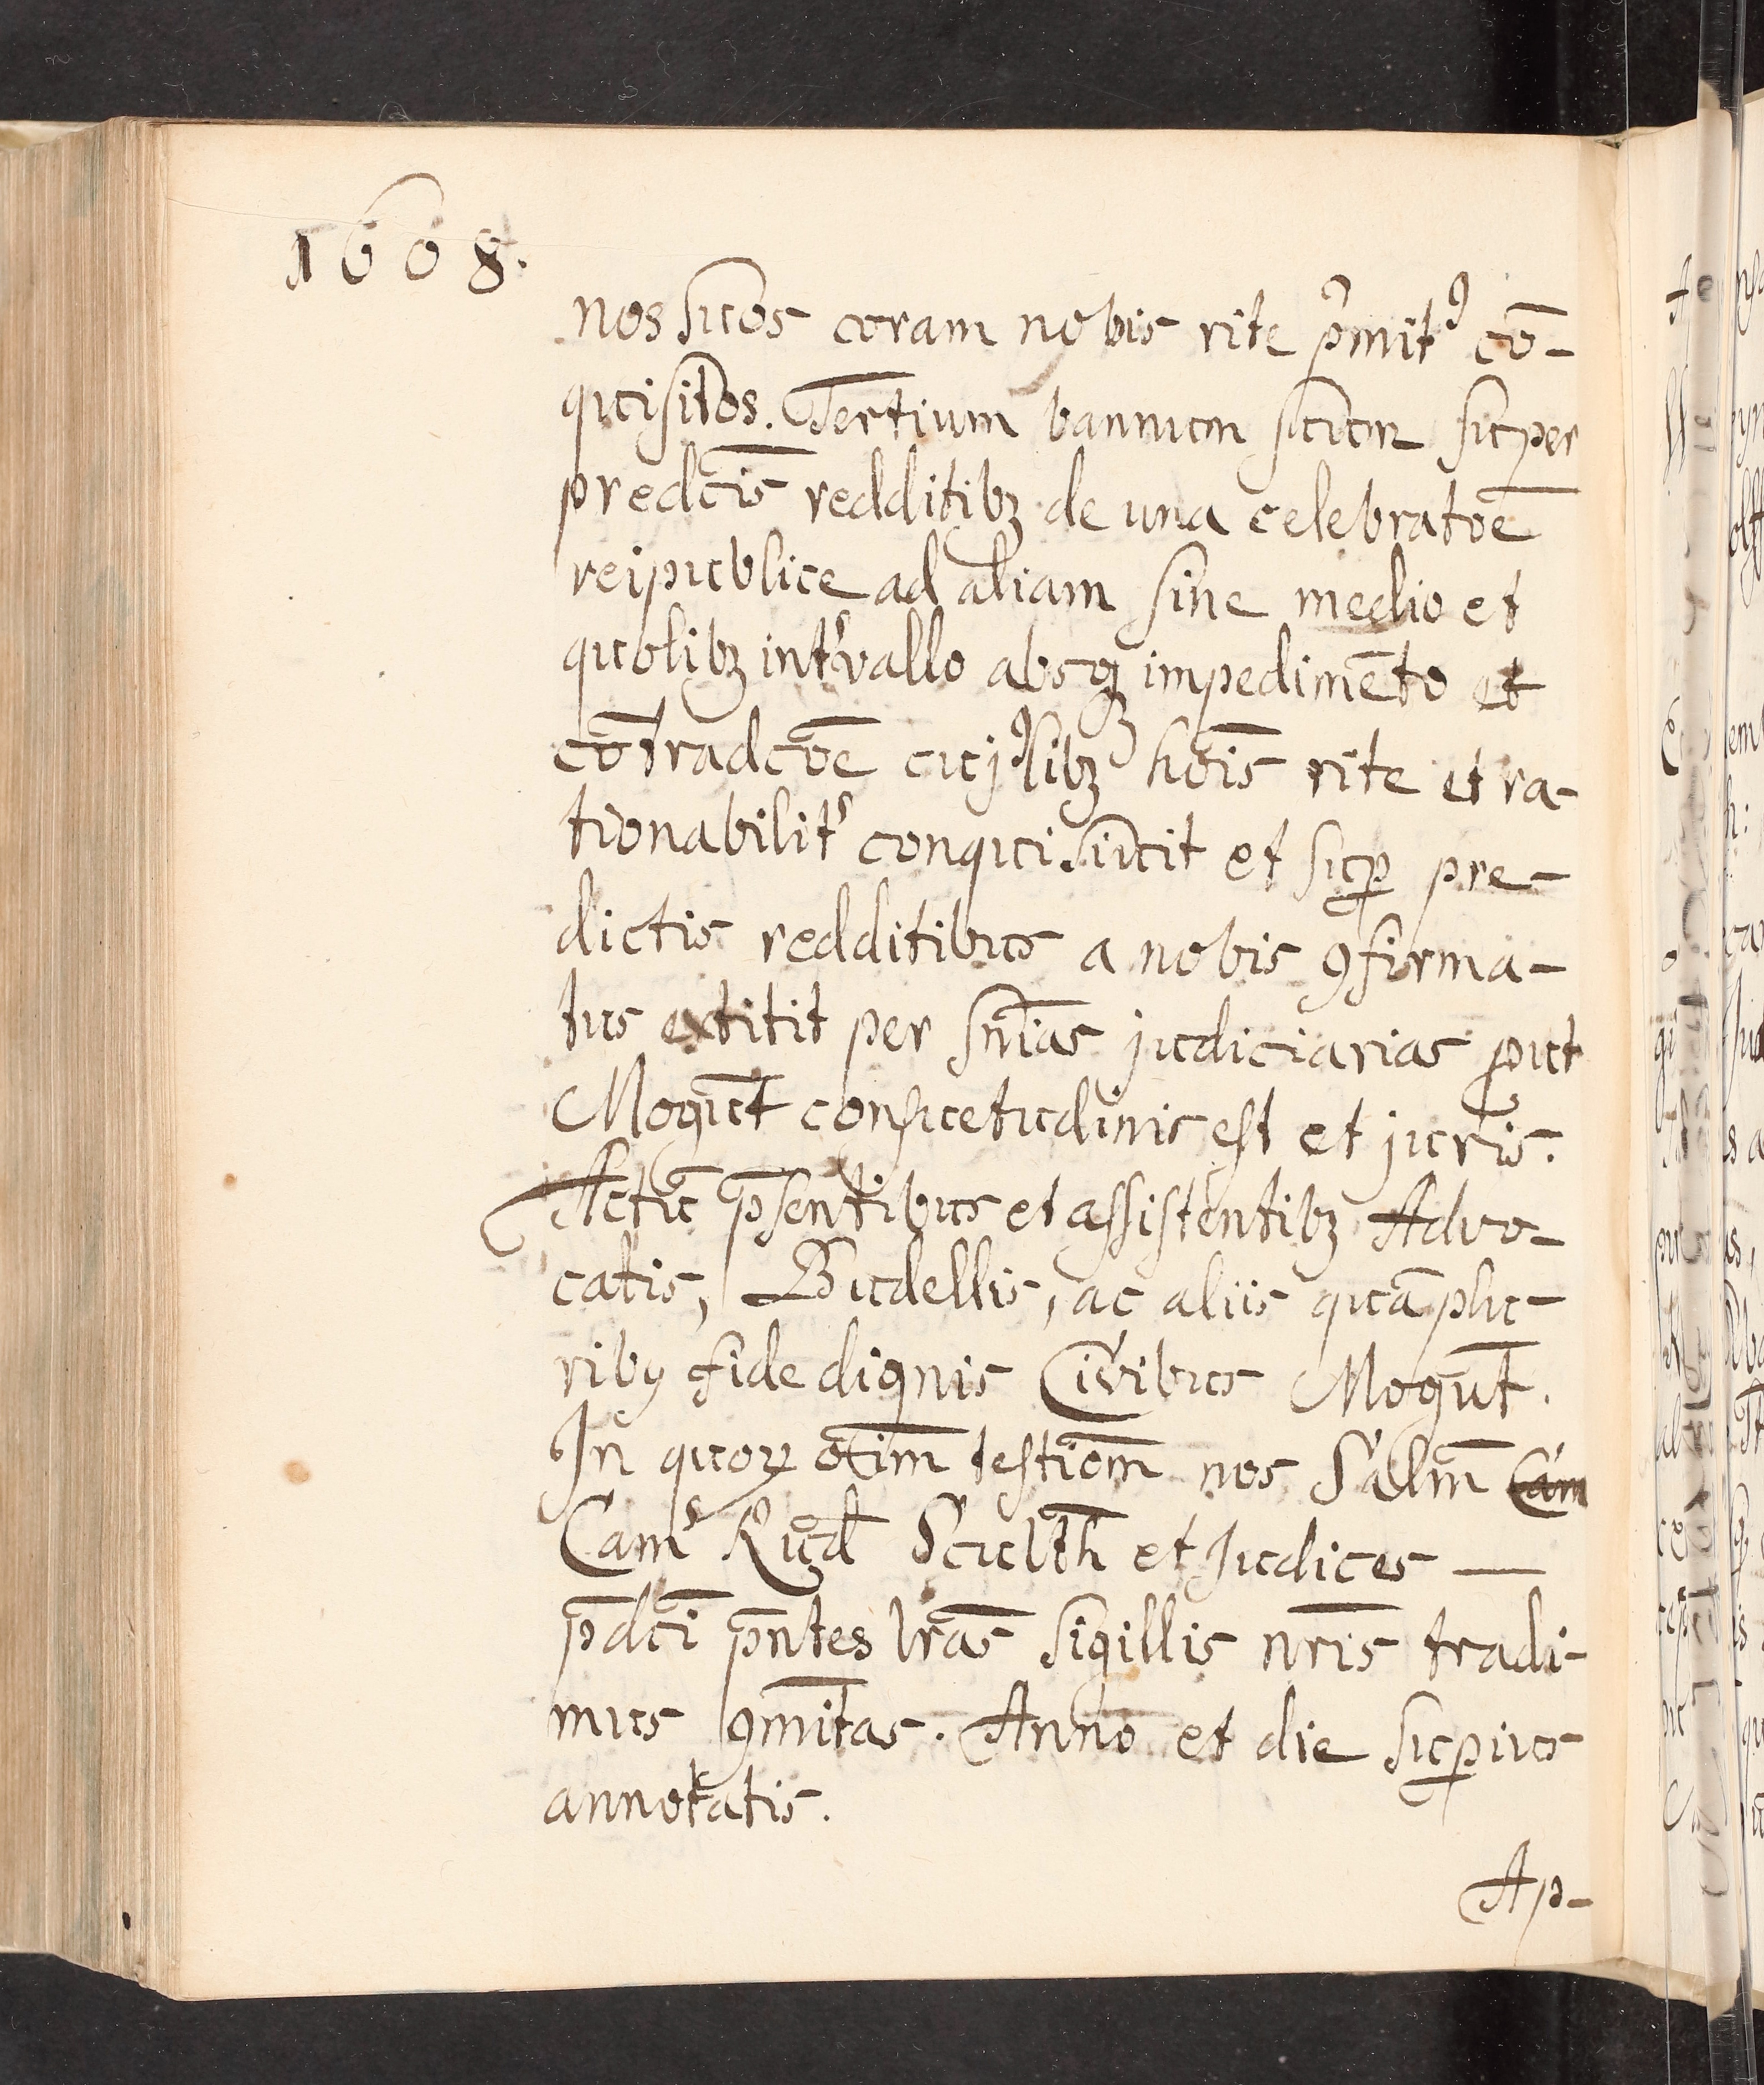 1608.
nos suos coram nobis rite p̄mitꝰ cō-
quisitos. Tertium bannum suum super
predcīs redditibꝫ de una celebratōe
reipublice ad aliam sine medio et
quolibꝫ intʼvallo absqꝫ impedimēto et
cōtradcōe cujꝰlibꝫ hoīs rite et ra-
tionabilitʼ conquisiuit et suꝑ pre-
dictis redditibus a nobis ꝯfirma-
tus extitit per sn̄ias judiciarias ꝓut
Mogūt consuetudinis est et juris.
Actū p̄sentibus et assistentibꝫ Advo-
catis, Budellis, ac aliis quāplu-
ribꝫ fide dignis Civibus Mogūt.
In quoꝝ oīm testiom̄ nos Salm̄
Camʼ Rud̄ Scultħ et Judices —
p̄dcī p̄ntes lr̄as sigillis nr̄is tradi-
mus ꝯmitas. Anno et die suꝑius
annotatis.
Ap-